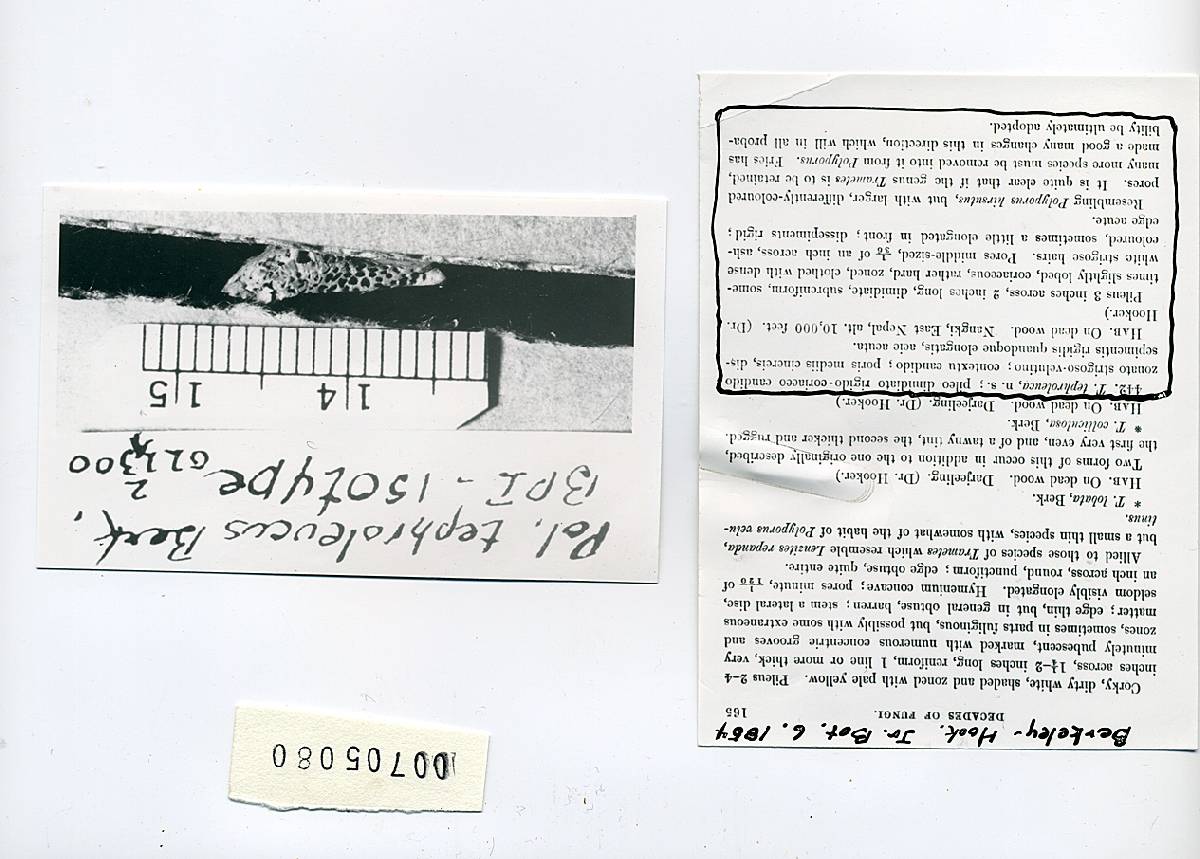 Berkeley - Hook. Jr. Bot. 6. 1854
DECADES OF FUNGI. 165
Corky, dirty white, shaded and zoned with pale yellow. Pileus 2–4
inches across, 1¾–2 inches long, reniform, 1 line or more thick, very
minutely pubescent, marked with numerous concentric grooves and
zones, sometimes in parts fuliginous, but possibly with some extraneous
matter; edge thin, but in general obtuse, barren; stem a lateral disc,
seldom visibly elongated. Hymenium concave; pores minute, 1/120 of
an inch across, round, punctiform; edge obtuse, quite entire.
Allied to those species of Trametes which resemble Lenzites repanda,
but a small thin species, with somewhat of the habit of Polyporus velu-
tinus.
* T. lobata, Berk.
HAB. On dead wood. Darjeeling. (Dr. Hooker.)
Two forms of this occur in addition to the one originally described,
the first very even, and of a tawny tint, the second thicker and rugged.
* T. colliculosa, Berk.
HAB. On dead wood. Darjeeling. (Dr. Hooker.)
442. T. tephroleuca, n. s.; pileo dimidiato rigido-coriaceo candido
zonato strigoso-velutino; contextu candido; poris mediis cinereis, dis-
sepimentis rigidis quandoque elongatis, acie acuta.
HAB. On dead wood. Nangki, East Nepal, alt. 10,000 feet. (Dr.
Hooker.)
Pileus 3 inches across, 2 inches long, dimidiate, subreniform, some-
times slightly lobed, coriaceous, rather hard, zoned, clothed with dense
white strigose hairs. Pores middle-sized, 1/36 of an inch across, ash-
coloured, sometimes a little elongated in front; dissepiments rigid;
edge acute.
Resembling Polyporus hirsutus, but with larger, differently-coloured
pores. It is quite clear that if the genus Trametes is to be retained,
many more species must be removed into it from Polyporus. Fries has
made a good many changes in this direction, which will in all proba-
bility be ultimately adopted.
00705080
Pol. tephroleucus Berk.
BPI - isotype
14 15